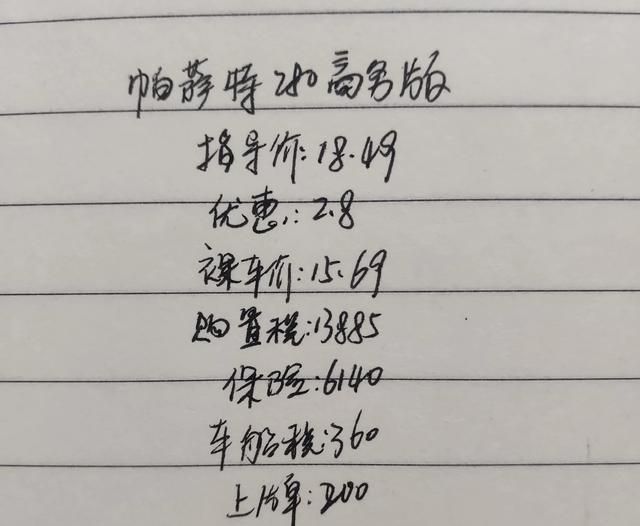 帕萨特280商务版
指导价:18.49
优惠:2.8
裸车价:15.69
购置税:13885
保险:6140
车船税:360
上牌:200